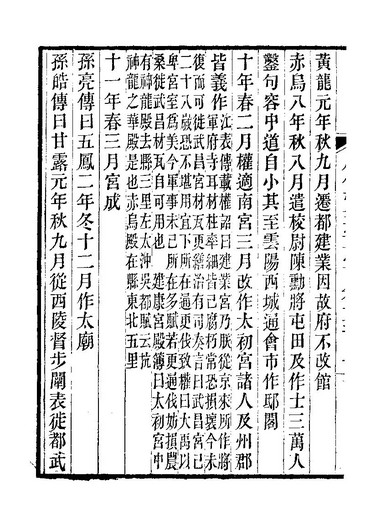 黃龍元年秋九月遷都建業因故府不改館
赤烏八年秋八月遣校尉陳勳將屯田及作士三萬人
鑿句容中道自小其至雲陽西城通會市作邸閣
十年春二月權適南宮三月改作太初宮諸人及州郡
皆義作
江表傳載權詔曰建業宮乃朕從京來所作將
軍府寺耳材柱率細皆已腐朽常恐損壞今未
復而可徙武昌宮材瓦更繕治有司奏言曰武昌宮已
二十八歲恐不堪用宜下所在通更伐致權曰大禹以
卑宮室為美今軍事未已所在多賦若更通伐妨損農
桑徙武昌材瓦自可用也 建康宮殿簿曰太初宮中
有神龍殿去縣三里左太沖吳都賦云抗
神龍之華殿是也赤烏殿在縣東北五里
十一年春三月宮成
孫亮傳曰五鳳二年冬十二月作太廟
孫皓傳曰甘露元年秋九月從西陵督步闡表徙都武